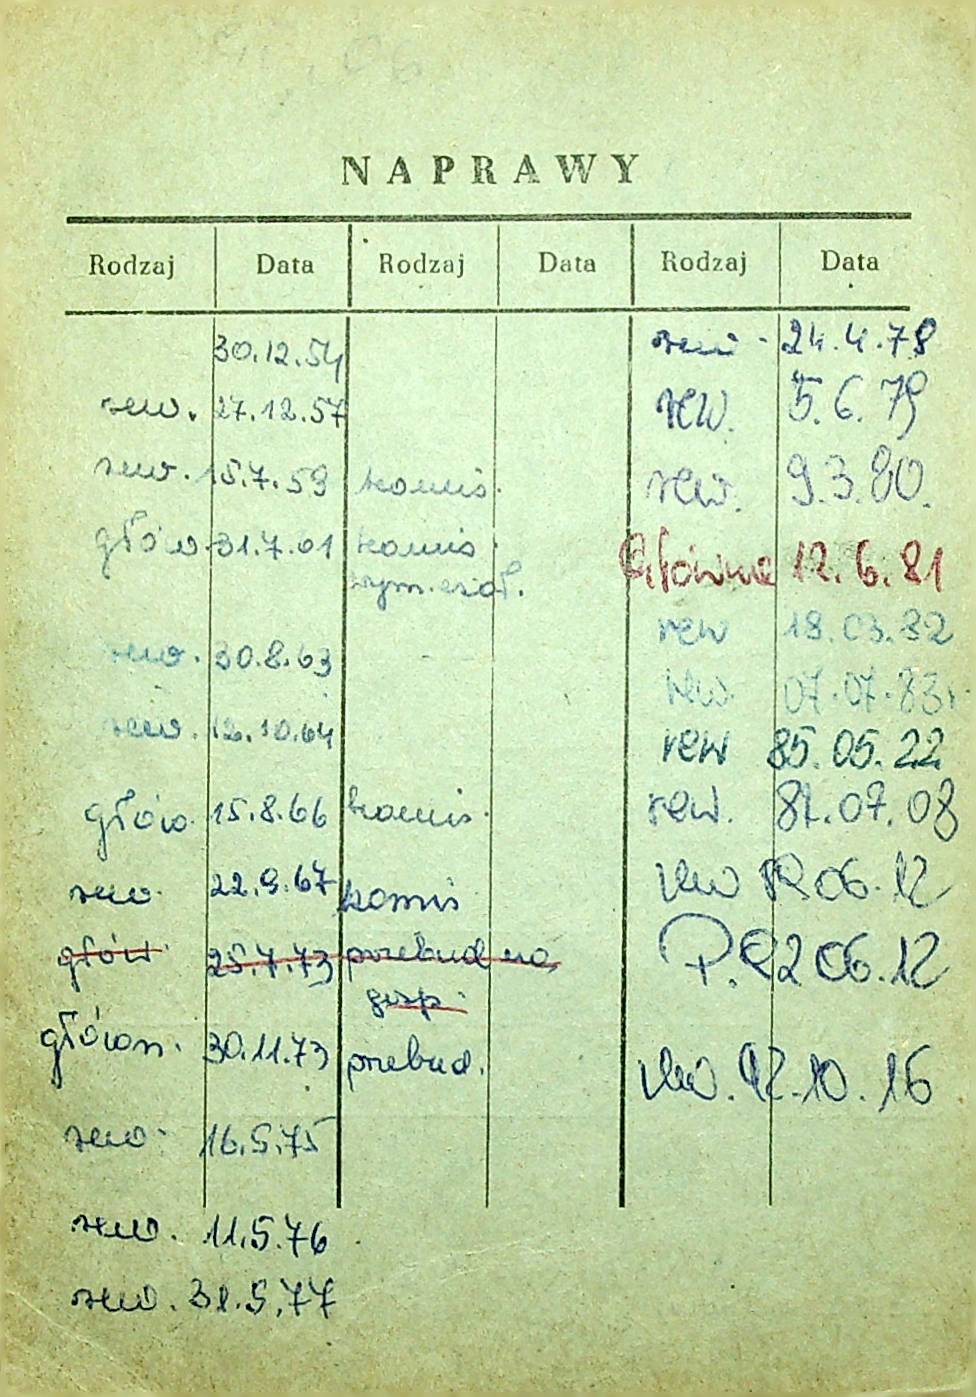 NAPRAWY
Rodzaj Data Rodzaj Data Rodzaj Data
30.12.54
rew. 27.12.57
rew. 15.7.59 komis.
głów. 31.7.61 komis.
wym. osół.
rew. 30.8.63
rew. 12.10.64
głów. 15.8.66 komis.
rew. 22.9.67 komis
głów. 25.7.73 przebud na
gosp.
główn. 30.11.73 przebud.
rew. 16.5.75
rew. 11.5.76
rew. 31.5.77
rew. 24.4.78
rew. 5.6.79
rew. 9.3.80.
Główna 12.6.81
rew 18.03.82
rew 07.07.83r.
rew 85.05.22
rew. 87.07.08
rew 06.12
P. 92 06.12
rew. 92.10.16